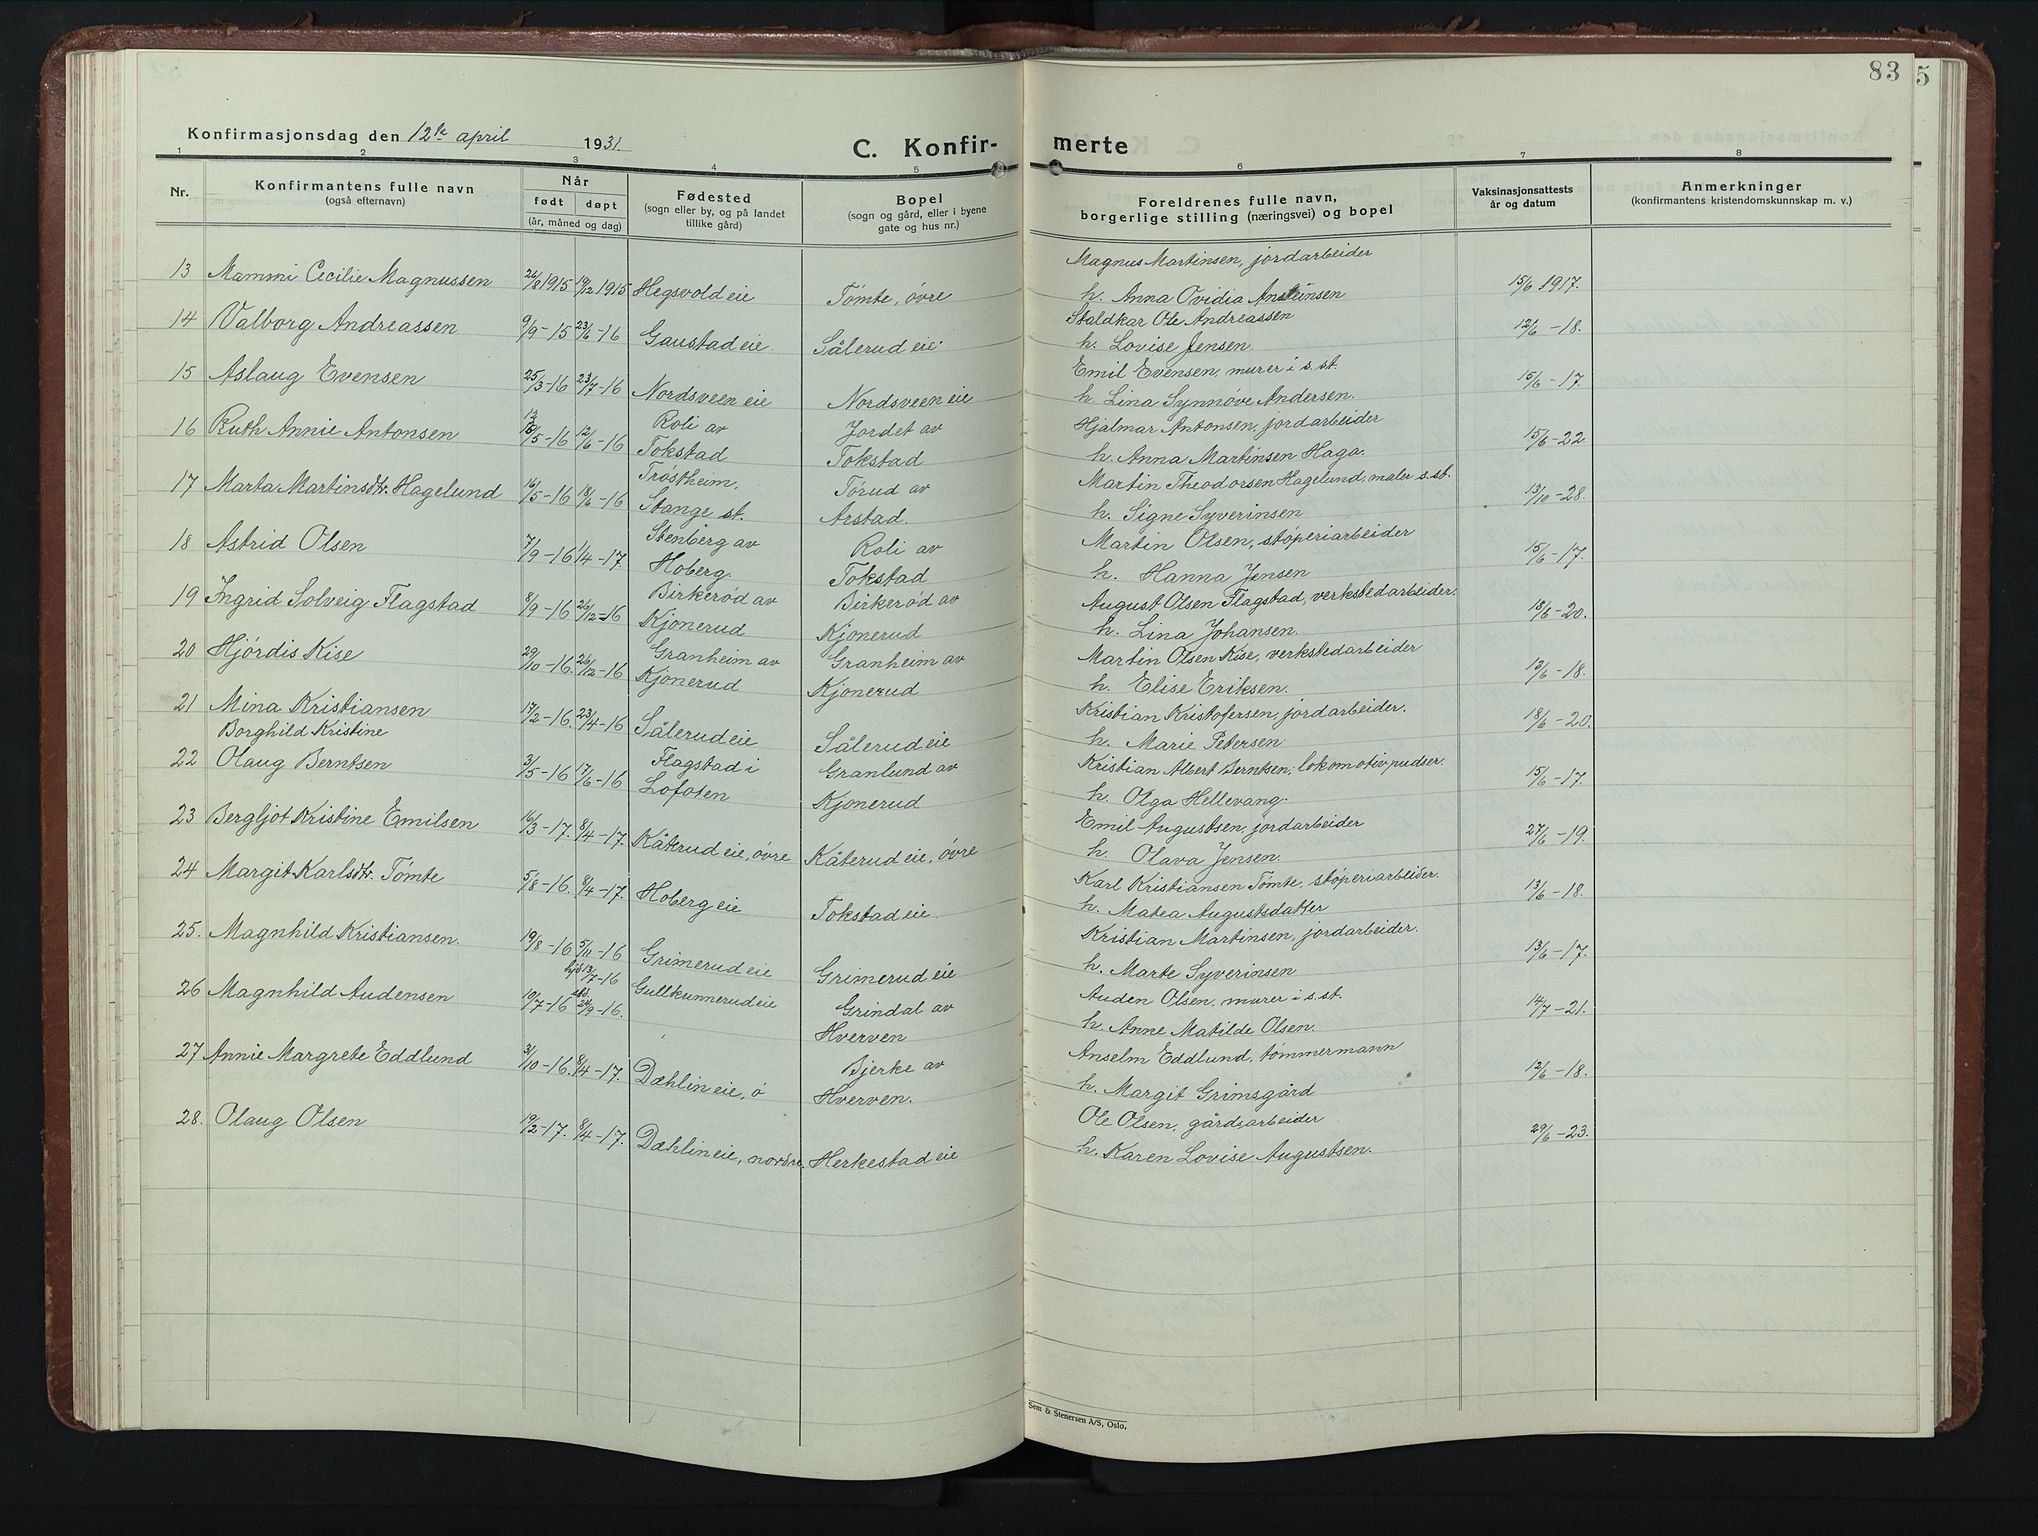 83
5
Konfirmasjonsdag den 12te april 1931.
C. Konfir-
merte
1 2 3 4 5 6 7 8
Nr.
Konfirmantens fulle navn
(også efternavn)
Når
født døpt
(år, måned og dag)
Fødested
(sogn eller by, og på landet
tillike gård)
Bopel
(sogn og gård, eller i byene
gate og hus nr.)
Foreldrenes fulle navn,
borgerlige stilling (næringsvei) og bopel
Vaksinasjonsattests
år og datum
Anmerkninger
(konfirmantens kristendomskunnskap m. v.)
Magnus Martinsen, jordarbeider
13 Mammi Cecilie Magnussen 26/8 1915 19/12 1915 Hegsvold eie Tømte, øvre h. Anna Ovidia Ansteinsen 15/6 1917.
Staldkar Ole Andreassen
14 Valborg Andreassen 9/9-15 23/6-16 Gaustad eie. Sålerud eie. h. Lovise Jensen. 12/6-18.
Emil Evensen, murer i s. st.
15 Aslaug Evensen 25/3-16 23/7-16 Nordsveen eie Nordsveen eie h. Lina Synnøve Andersen. 15/6-17.
Roli av Jordet av Hjalmar Antonsen, jordarbeider
16 Ruth Annie Antonsen /5-16 12/6-16 Tokstad Tokstad h. Anna Martinsen Haga. 15/6-22.
Trøstheim, Tørud av Martin Theodorsen Hagelund, maler s. st.
17 Marta Martinsdtr. Hagelund 16/5-16 18/6-16 Stange st. Arstad. h. Signe Syverinsen 13/10-28.
Stenberg av Roli av Martin Olsen, støperiarbeider
18 Astrid Olsen 7/9-16 1/4-17. Hoberg. Tokstad h. Hanna Jensen 15/6-17.
Birkerød av Birkerød av August Olsen Flagstad, verkstedarbeider.
19 Ingrid Solveig Flagstad 8/9-16 26/12-16 Kjonerud Kjonerud h. Lina Johansen. 18/6-20.
Granheim av Granheim av Martin Olsen Kise, verkstedarbeider
20 Hjørdis Kise 29/10-16. 26/12-16 Kjonerud Kjonerud h. Elise Eriksen. 13/6-18.
21 Mina Kristiansen Kristian Kristofersen, jordarbeider.
Borghild Kristine 17/2-16. 23/4-16 Sålerud eie Sålerud eie h. Marie Petersen 18/6-20.
Flagstad i Granlund av Kristian Albert Berntsen, lokomotivpudser.
22 Olaug Berntsen 3/5-16 17/6-16 Lofoten Kjonerud h. Olga Hellevang. 15/6-17.
Emil Augustsen, jordarbeider
23 Bergljot Kristine Emilsen 16/3-17. 8/4-17. Kåterud eie, øvre Kåterud eie, øvre h. Olava Jensen. 27/6-19.
Karl Kristiansen Tømte, støperiarbeider.
24 Margit Karlsdtr. Tømte 5/8-16. 8/4-17. Hoberg eie Tokstad eie. h. Matea Augustsdatter 13/6-18.
Kristian Martinsen, jordarbeider.
25. Magnhild Kristiansen. 19/8-16 5/11-16 Grimerud eie Grimerud eie h. Marte Syverinsen 13/6-17.
hjd 13/7-16 Auden Olsen, murer i s. st.
26 Magnhild Audensen 10/7-16 std. 24/9-16. Gullkunnerud eie Grindal av Hverven h. Anne Matilde Olsen. 14/7-21.
Bjerke av Anselm Eddlund, tømmermann
27 Annie Margrete Eddlund 31/10-16. 8/4-17. Dæhlin eie, ø Hverven. h. Margit Grimsgård 12/6-18.
Ole Olsen, gårdsarbeider
28. Olaug Olsen 19/2-17. 8/4-17. Dæhlin eie, nordre. Herkestad eie h. Karen Lovise Augustsen. 29/6-23.
Sem & Stenersen A/S, Oslo.